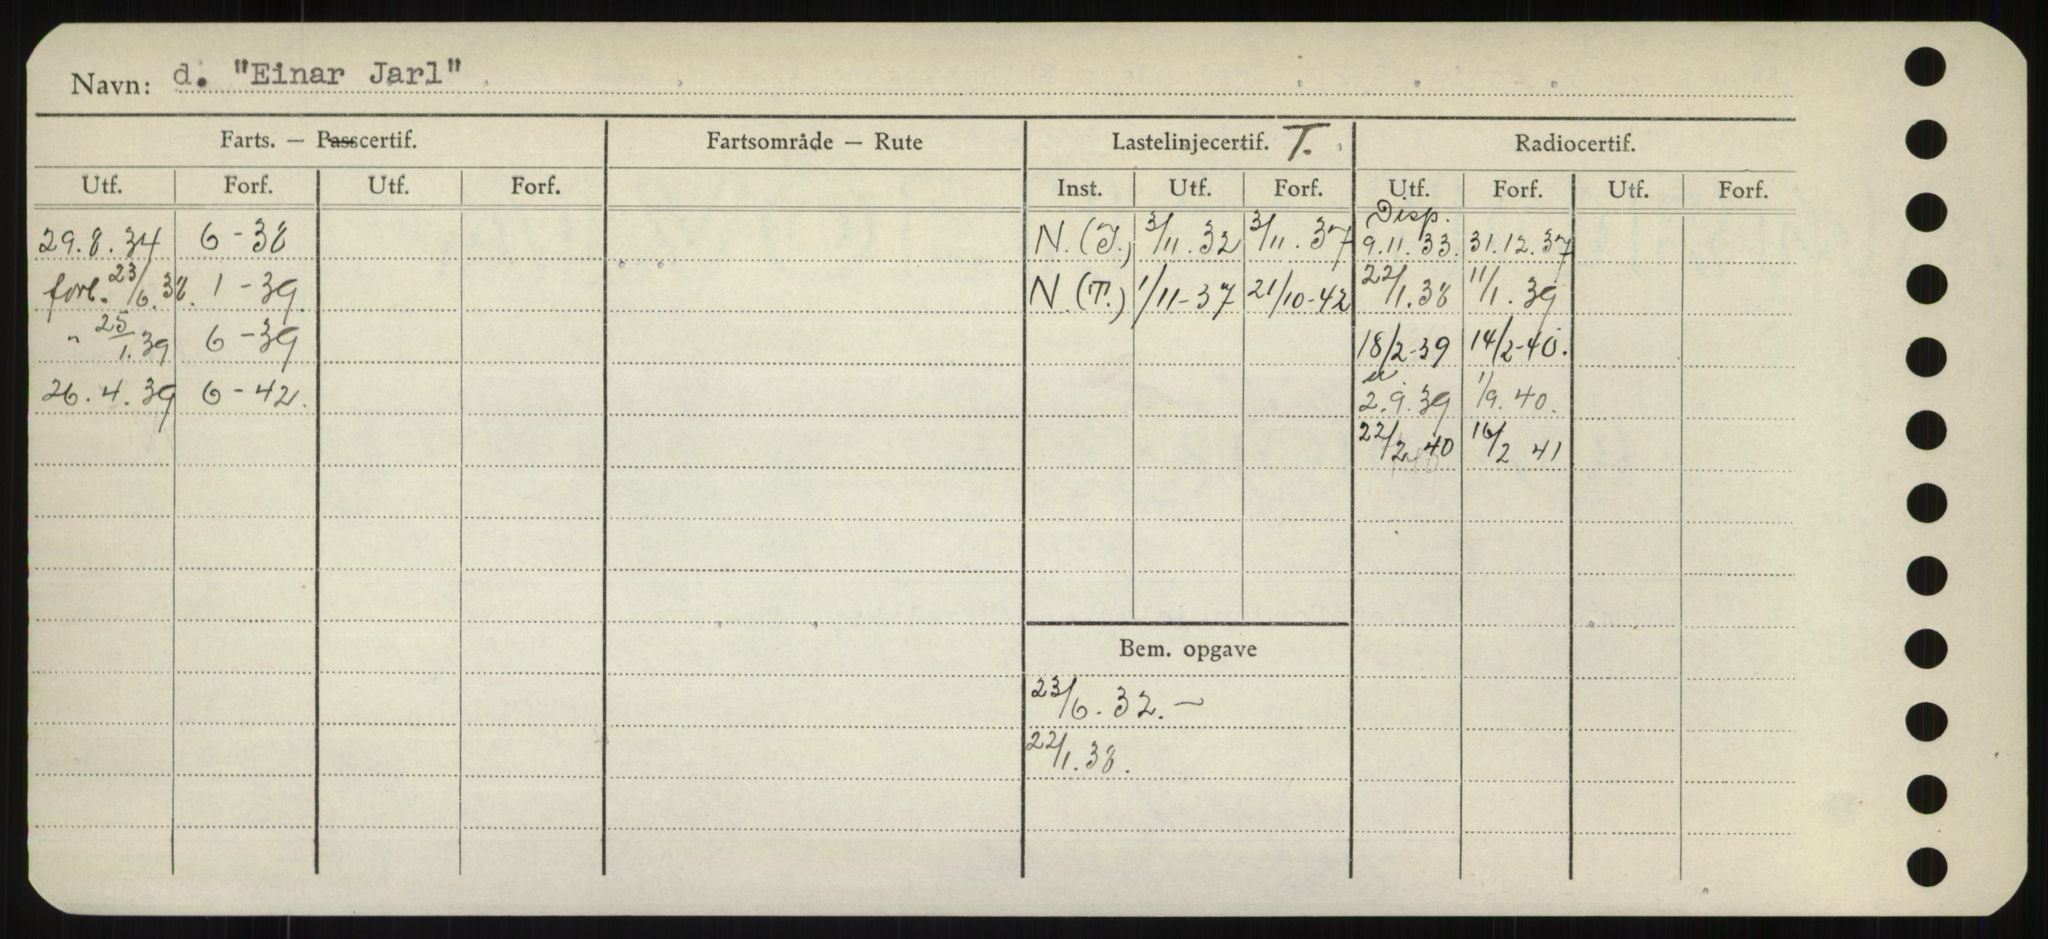 Navn: d. "Einar Jarl"
Farts. — Passcertif. Fartsområde — Rute Lastelinjecertif. T. Radiocertif.
Utf. Forf. Utf. Forf. Inst. Utf. Forf. Utf. Forf. Utf. Forf.
Disp.
29.8.34 6-38 N.(T.) 3/11.32 3/11.37 9.11.33. 31.12.37
forl. 23/6.38. 1-39. N.(T.) 1/11-37 21/10-42 22/1.38 11/1.39
" 25/1.39 6-39 18/2-39 14/2-40.
26.4.39 6-42. 2.9.39 1/9.40.
22/2 40 16/2 41
Bem. opgave
23/6.32.—
22/1.38.